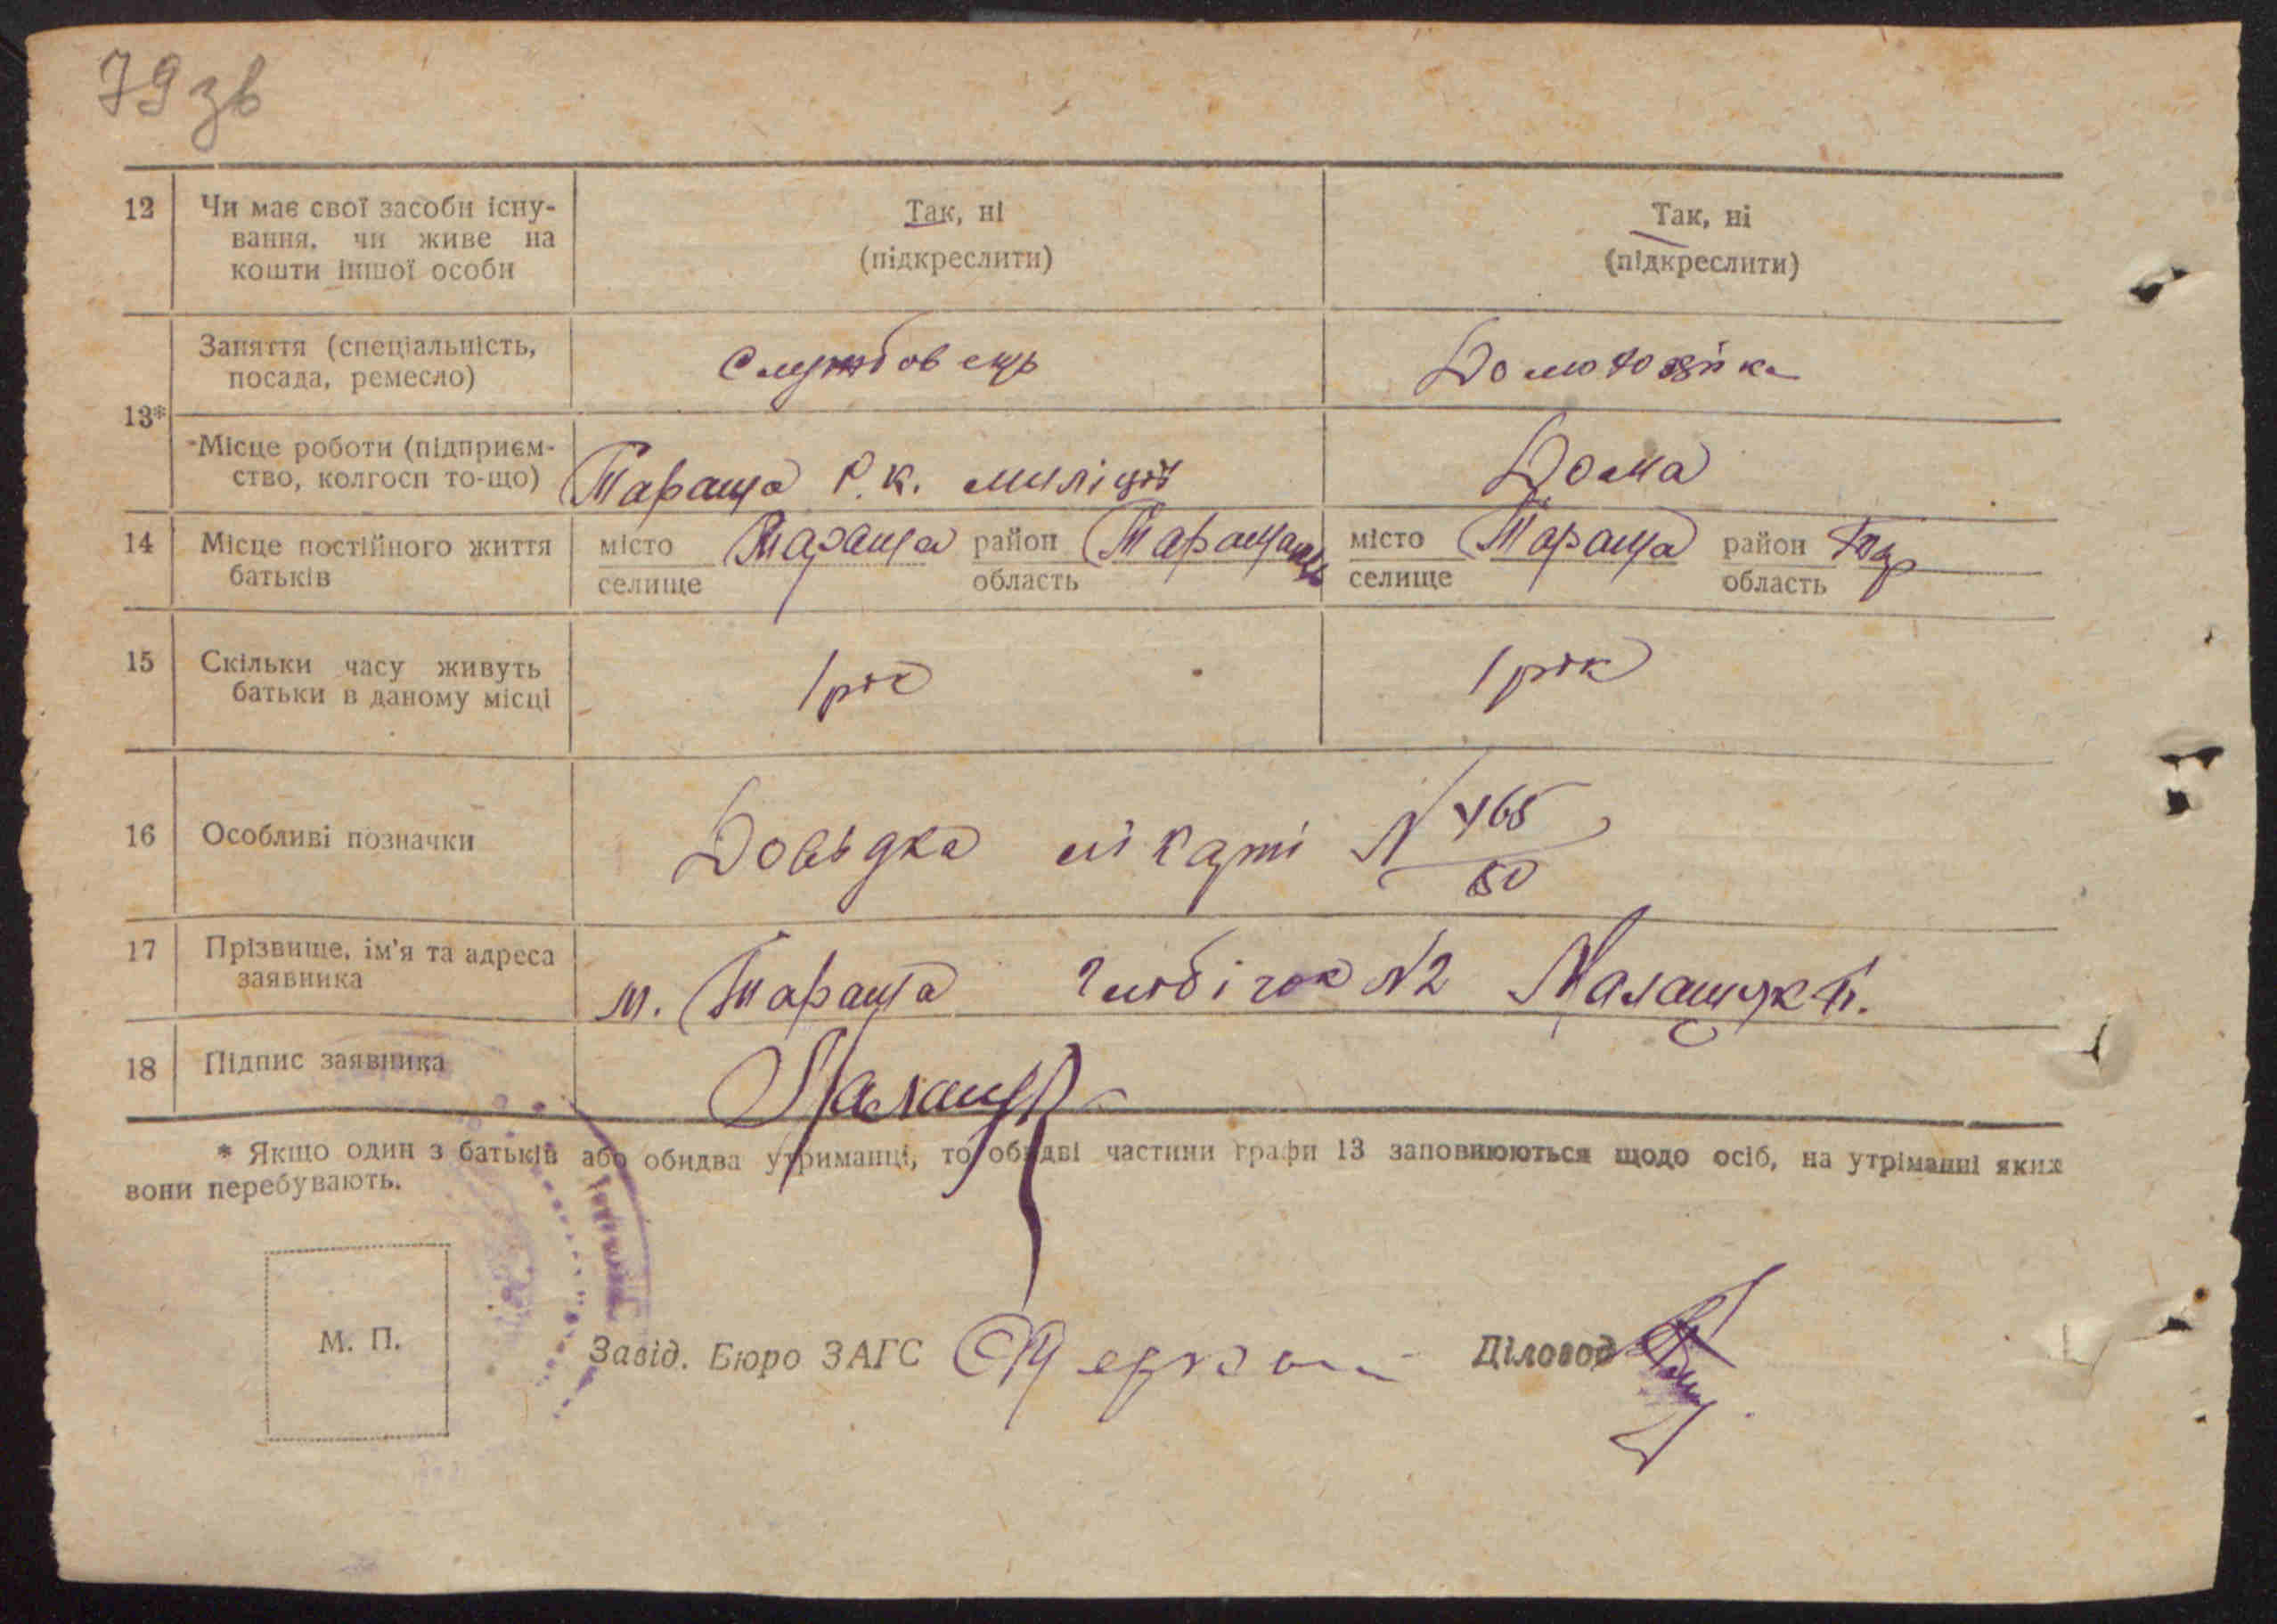 79 зв
12 Чи має свої засоби існу- Так, ні Так, ні
вання, чи живе на
кошти іншої особи (підкреслити) (підкреслити)
Заняття (спеціальність, Службовець Домохозяйка
посада, ремесло)
13*
Місце роботи (підприєм- Тараща Р.К. міліції Дома
ство, колгосп то-що)
14 Місце постійного життя місто Тараща район місто Тараща район
батьків селище область селище область
15 Скільки часу живуть 1 рік 1 рік
батьки в даному місці
16 Особливі позначки Довідка № 465/50
17 Прізвище, ім'я та адреса
заявника м. Тараща №2
18 Підпис заявника
* Якщо один з батьків або обидва утриманці, то обидві частини графи 13 заповнюються щодо осіб, на утріманні яких
вони перебувають.
М. П. Завід. Бюро ЗАГС Діловод